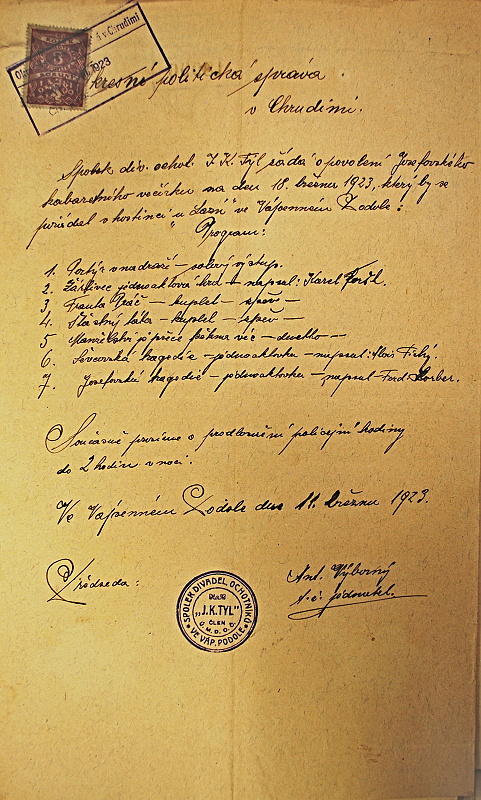 KOLEK
5
KORUN
v Chrudimi
1923
Okresní politická správa
v Chrudimi.
Spolek div. ochot. J. K. Tyl žádá o povolení Josefovského
kabaretního večírku na den 18. března 1923, který by se
pořádal v hostinci "u Lázní" ve Vápenném Podole:
Program:
1. Portýr v nádraží – solový výstup.
2. Zářivec jednoaktová hra – napsal: Karel
3. Franta – kuplet – zpěv –
4. Šťastný táta – kuplet – zpěv –
5 Manželství je přece krásná věc – duetto –
6. Ševcovská tragedie – jednoaktovka – napsal: Alois Tichý.
7. Josefovská tragedie – jednoaktovka – napsal Ferd. Korber.
Současně prosíme o prodloužení policejní hodiny
do 2 hodin v noci.
Ve Vápenném Podole dne 11. března 1923.
Předseda:
Ant. Výborný
t. č. jednatel.
SPOLEK DIVADEL. OCHOTNÍKŮ
"J.K.TYL"
ČLEN
Ú. M. D. O. Č.
VE VÁP. PODOLE